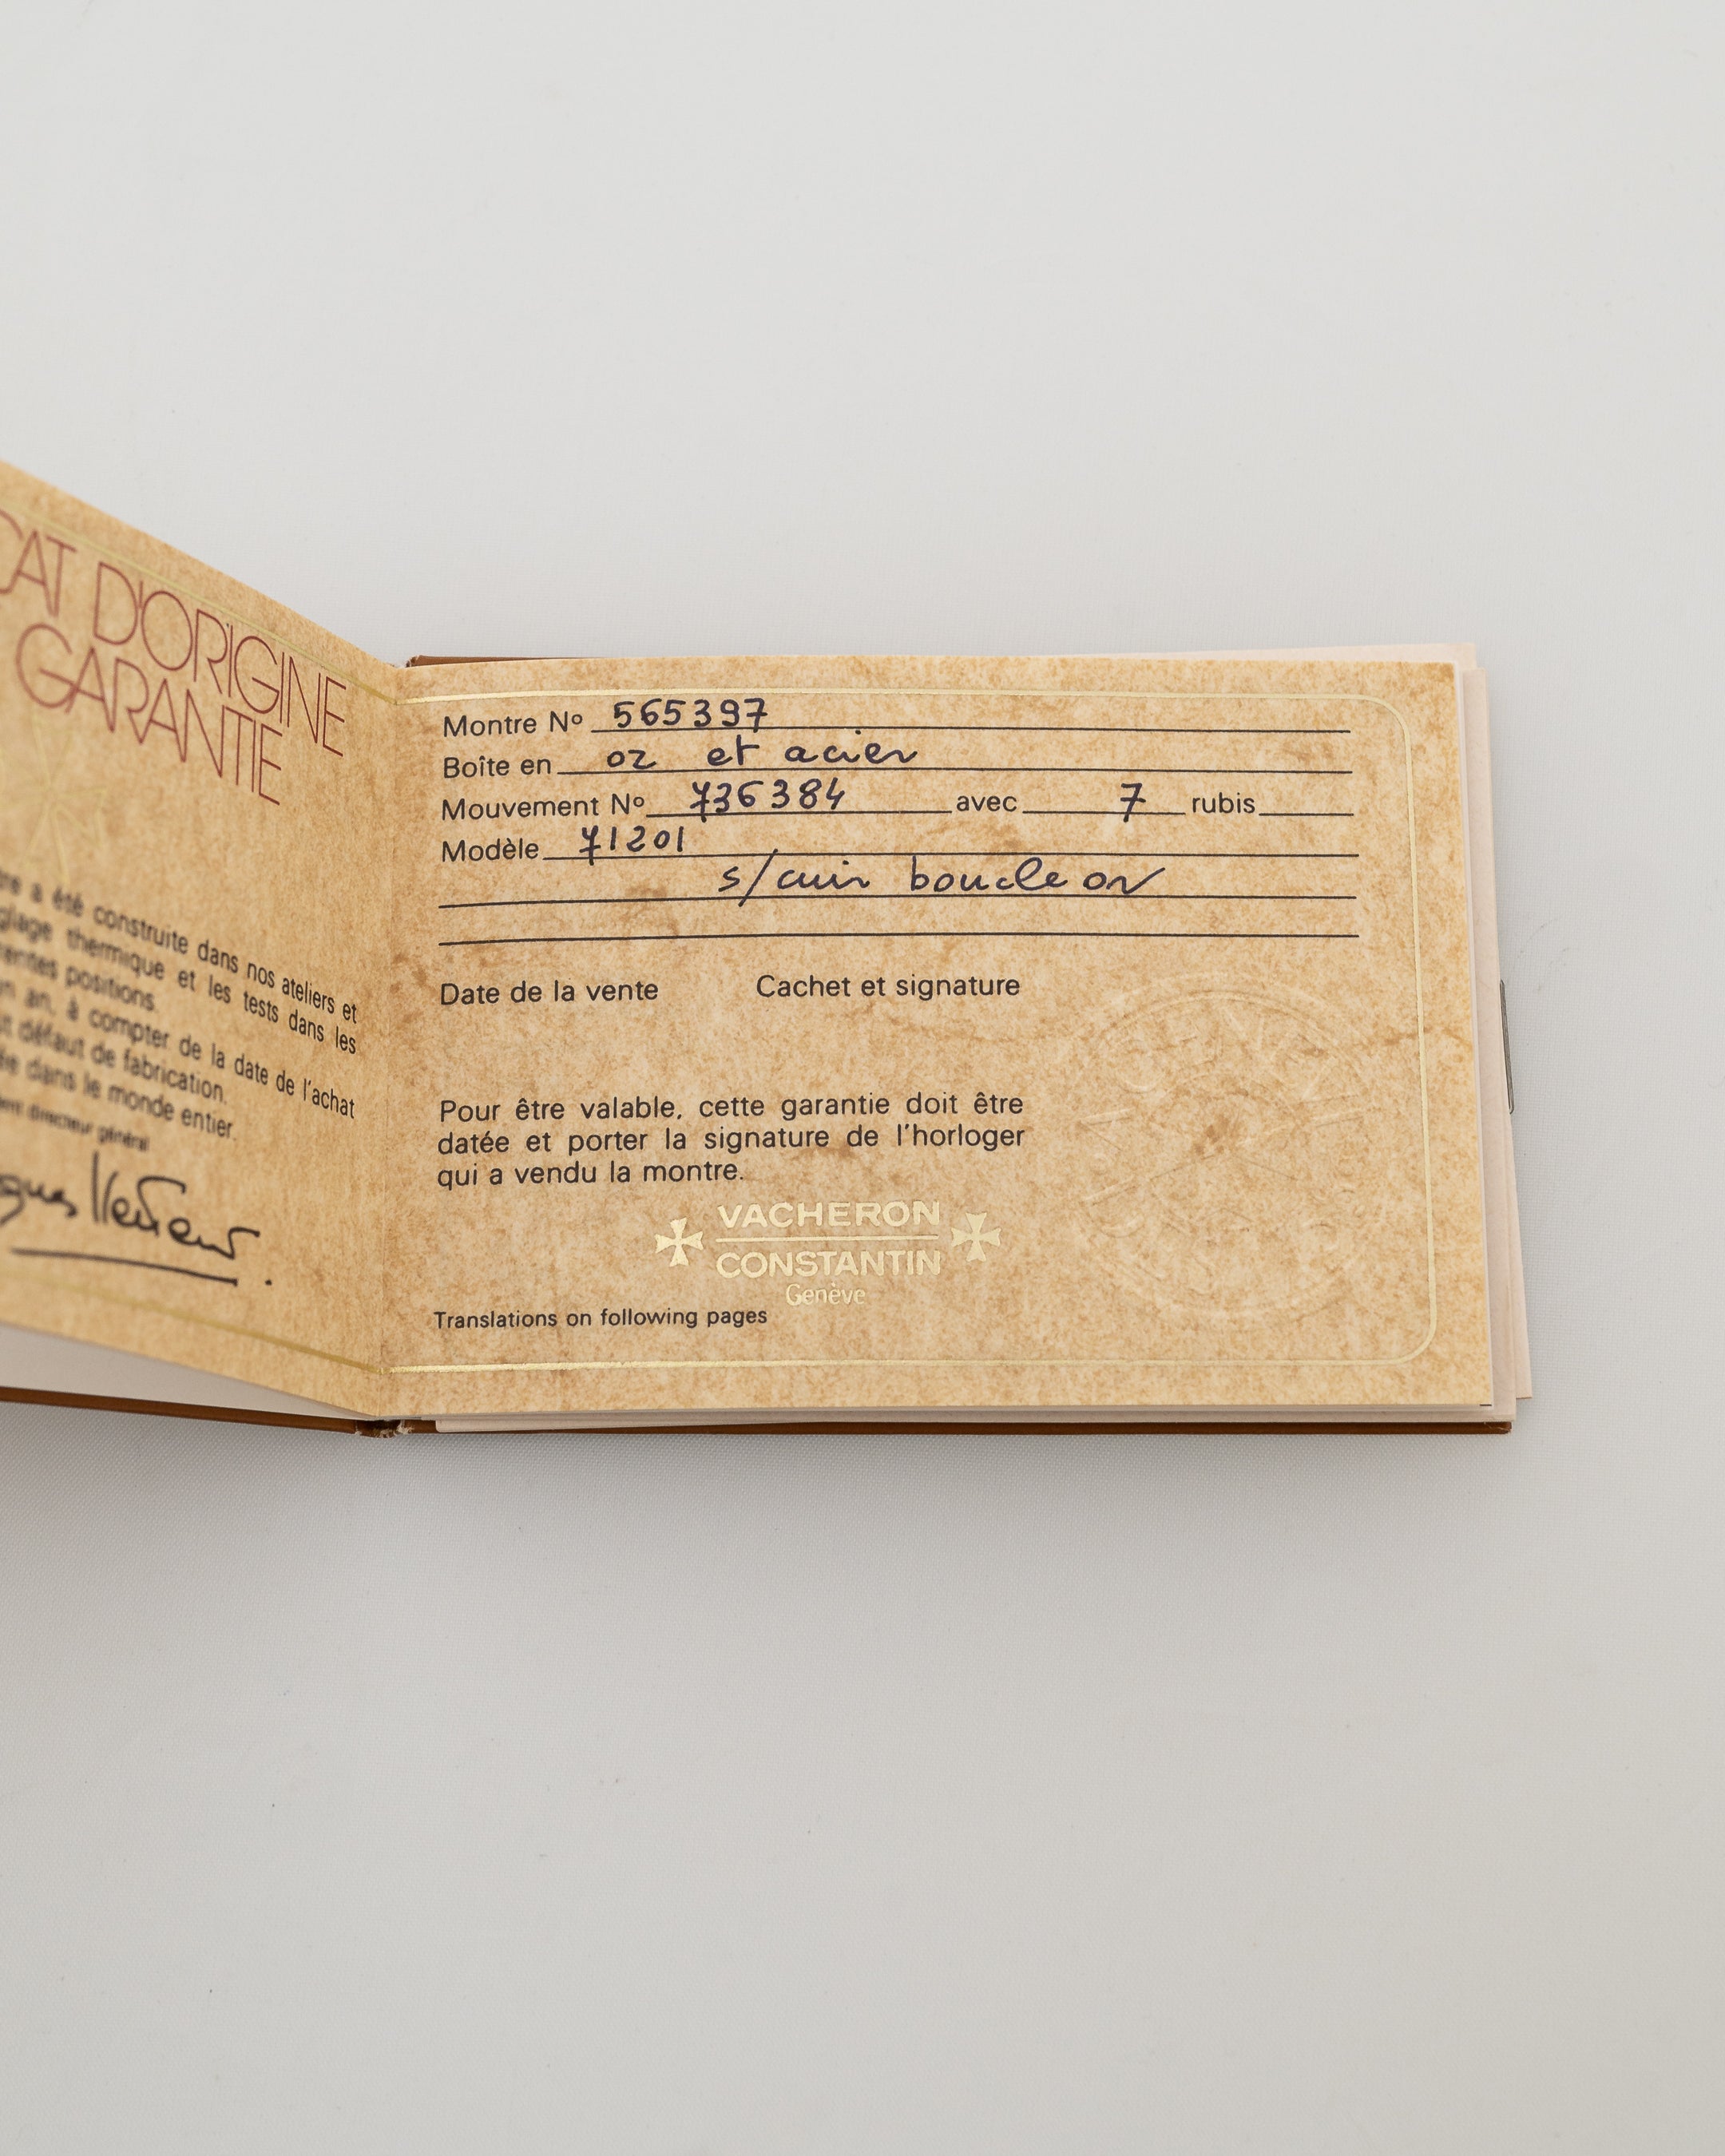 CAT D'ORIGINE
GARANTIE
a été construite dans nos ateliers et
thermique et les tests dans les
positions.
un an, à compter de la date de l'achat
défaut de fabrication.
dans le monde entier.
directeur général
Montre Nº 565397
Boîte en or et acier
Mouvement Nº 736384 avec 7 rubis
Modèle 71201
s/cuir boucle or
Date de la vente Cachet et signature
Pour être valable, cette garantie doit être
datée et porter la signature de l'horloger
qui a vendu la montre.
VACHERON
CONSTANTIN
Genève
Translations on following pages